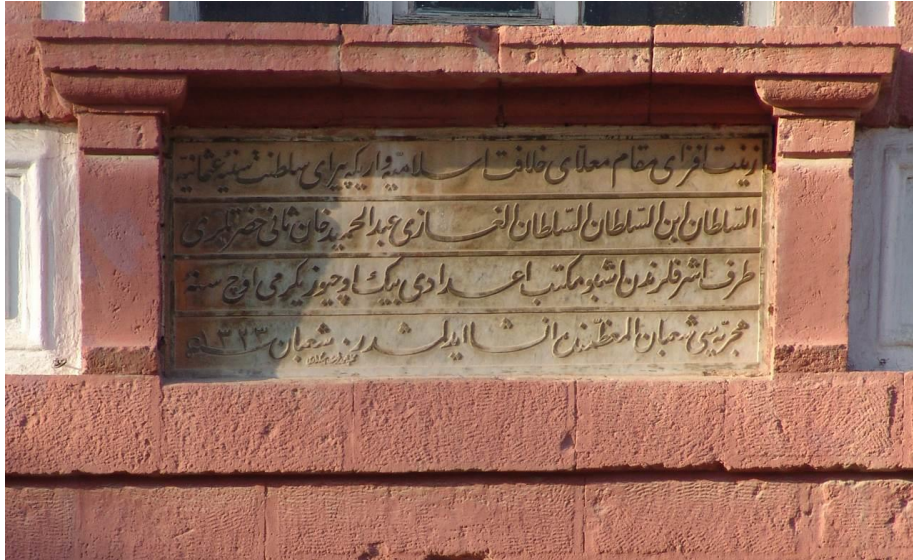 زينت افزای مقام معلّای خلافت اسلاميه و اريكه پيرای سلطنت سنيۀ عثمانيه
السّلطان ابن السّلطان السّلطان الغازی عبدالحميد خان ثانی حضرتلرينك
طرف اشرفلرندن اشبو مكتب اعدادی بيك اوچيوز يكرمی اوچ سنۀ
هجريه‌سی شعبان المعظّمنده انشا ايدلمشدر فی شعبان سنه ١٣٢٣